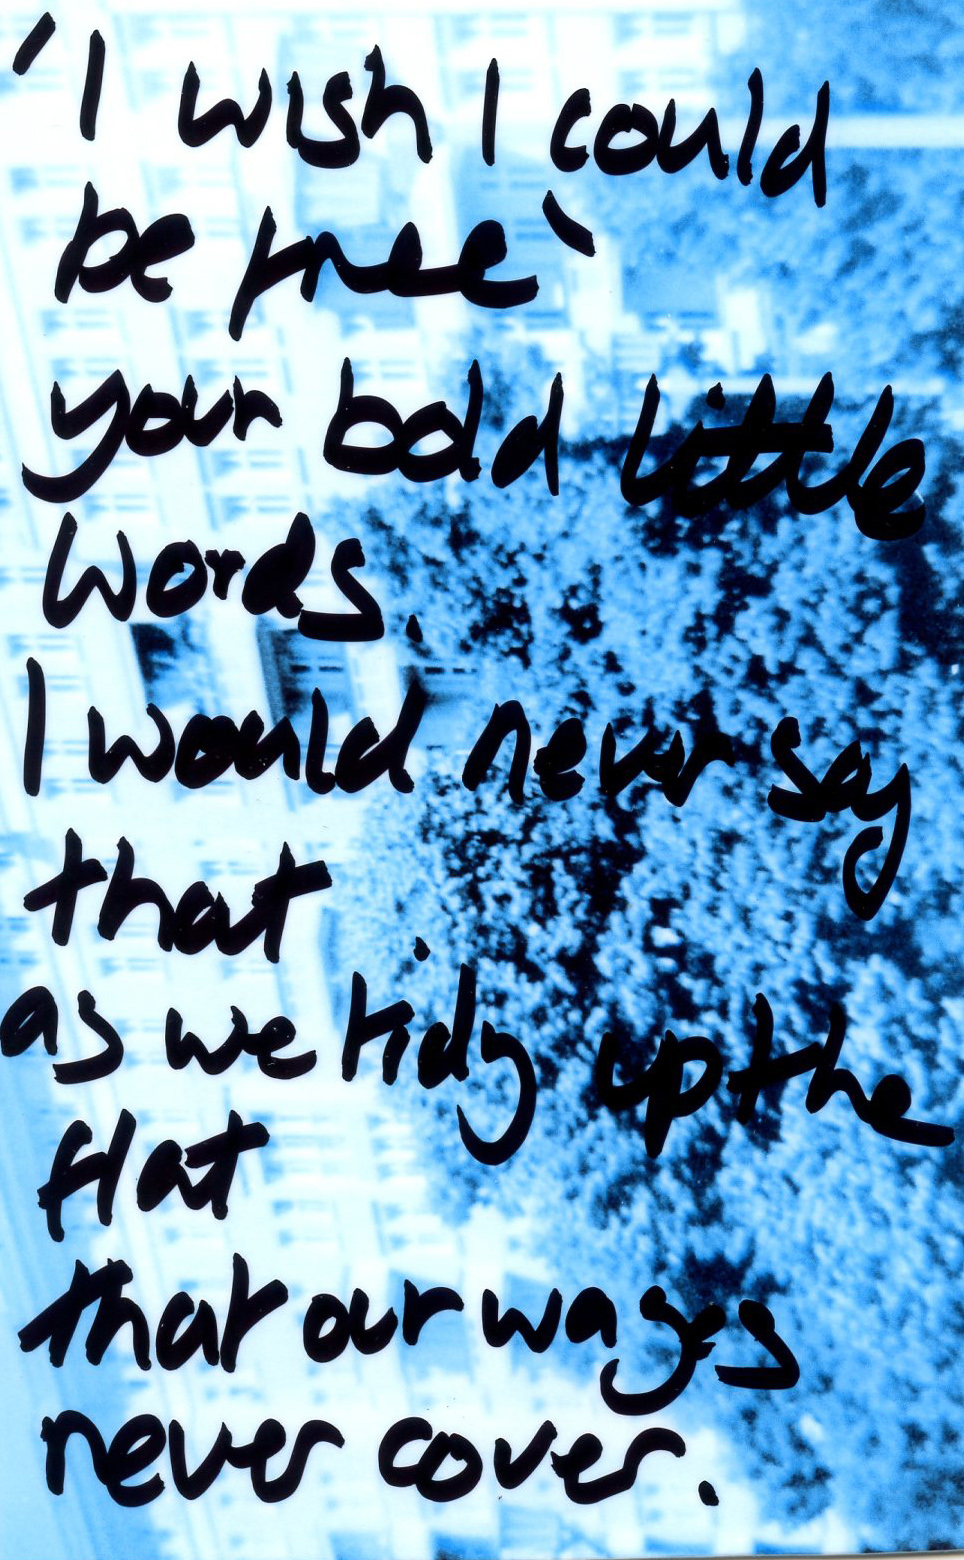 'I wish I could
be free'
your bold little
words.
I would never say
that
as we tidy up the
flat
that our wages
never cover.